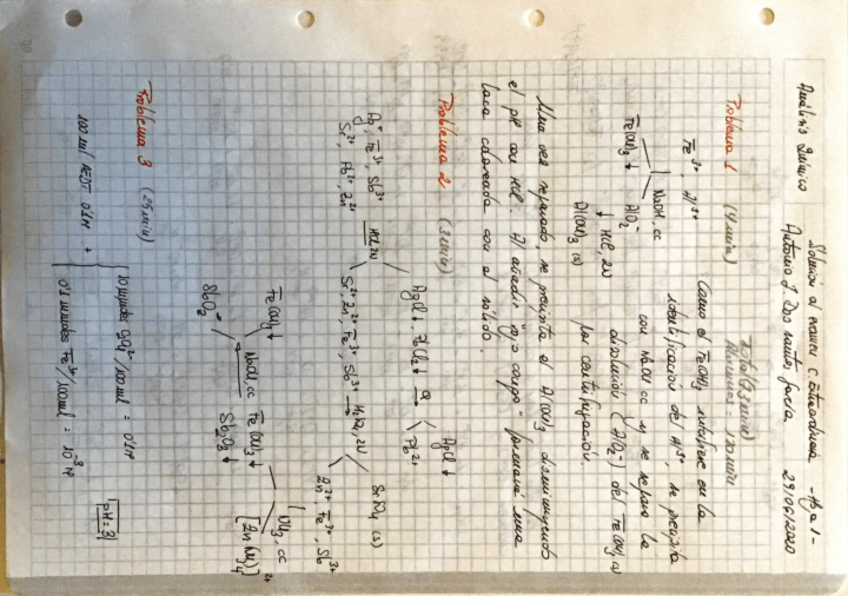 Solución al examen C. Extraordinaria - Hoja 1 -
Análisis Químico Antonio J. Dos santos García 29/06/2020
Total (73min)
Alumnos = 120min
Problema 1 (4min)
Fe3+, Al3+
NaOH, cc
Fe(OH)3↓ AlO2-
↓ HCl, 2N
Al(OH)3 (s)
Como el Fe(OH)3 interfiere en la
identificación del Al3+, se precipita
con NaOH cc y se separa la
disolución (AlO2-) del Fe(OH)3 (s)
por centrifugación.
Una vez separado, se precipita el Al(OH)3 disminuyendo
el pH con HCl. Al añadir "rojo congo" formará una
laca coloreada con el sólido.
Problema 2 (3min)
Ag+, Fe3+, Sb3+
Sr2+, Pb2+, Zn2+
HCl 2N
AgCl↓, PbCl2↓ Q→ AgCl↓
Pb2+
Sr2+, Zn2+, Fe3+, Sb3+ → H2SO4, 2N
SrSO4 (s)
Zn2+, Fe3+, Sb3+
NH3, cc
[Zn(NH3)4]2+
Fe(OH)3↓
Sb2O3↓
NaOH, cc
Fe(OH)3↓
SbO2-
Problema 3 (25min)
100 ml AEDT 0'1M +
10 mmoles SO42-/100ml = 0'1M
0'1 mmoles Fe3+/100ml = 10-3 M
pH=3